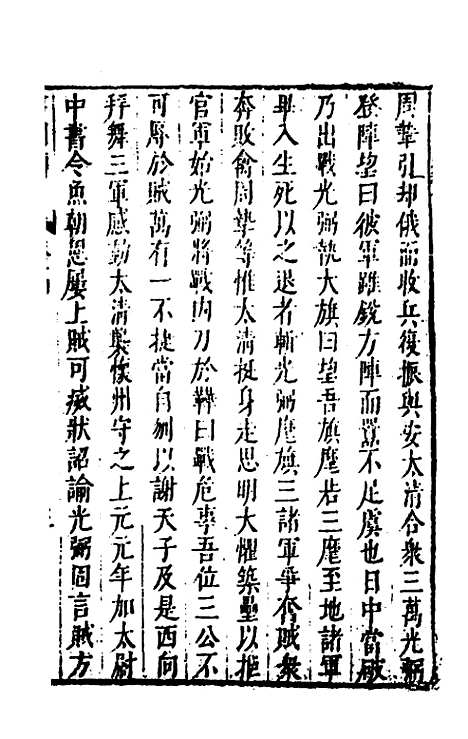 周摯引却俄而收兵復振與安太清合衆三萬光弼
登陣望曰彼軍雖銳方陣而囂不足虞也日中當破
乃出戰光弼執大旗曰望吾旗麾若三麾至地諸軍
畢入生死以之退者斬光弼麾旗三諸軍爭奮賊衆
奔敗禽周摯等惟太清挺身走思明大懼築壘以拒
官軍始光弼將戰內刃於鞾曰戰危事吾位三公不
可辱於賊萬有一不捷當自刎以謝天子及是西向
拜舞三軍感動太清襲懷州守之上元元年加太尉
中書令魚朝恩屢上賊可滅狀詔諭光弼固言賊方